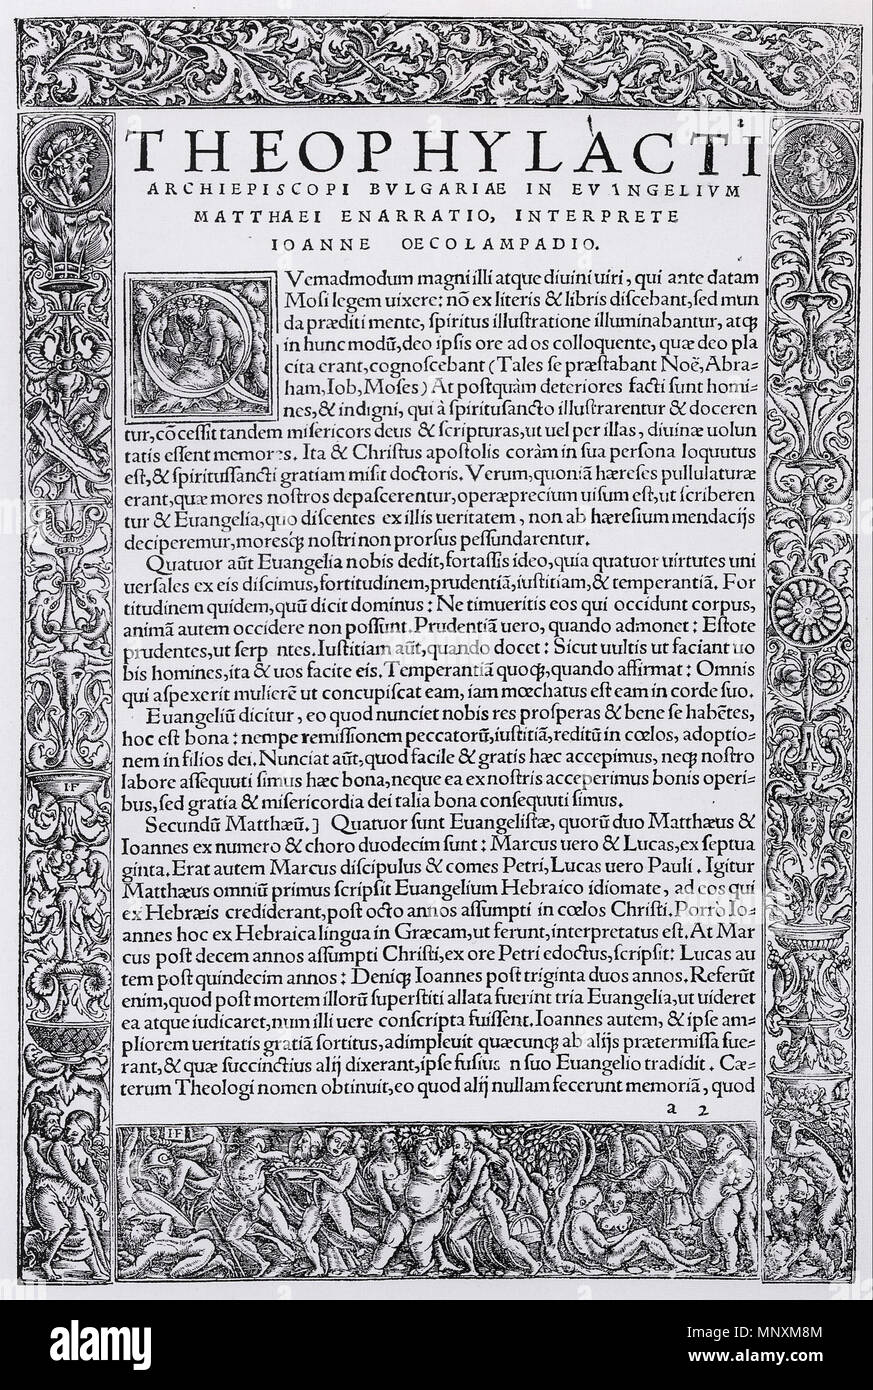 THEOPHYLACTI
ARCHIEPISCOPI BVLGARIAE IN EVANGELIVM
MATTHAEI ENARRATIO, INTERPRETE
IOANNE OECOLAMPADIO.
QVemadmodum magni illi atque diuini uiri, qui ante datam
Mosi legem uixere: nõ ex literis & libris discebant, sed mun
da præditi mente, spiritus illustratione illuminabantur, atqꝫ
in hunc modũ, deo ipsis ore ad os colloquente, quæ deo pla
cita erant, cognoscebant (Tales se præstabant Noë, Abra=
ham, Iob, Moses) At postquàm deteriores facti sunt homi=
nes, & indigni, qui à spiritusancto illustrarentur & doceren
tur, cõcessit tandem misericors deus & scripturas, ut uel per illas, diuinæ uolun
tatis essent memores. Ita & Christus apostolis coràm in sua persona loquutus
est, & spiritussancti gratiam misit doctoris. Verum, quoniã hæreses pullulaturæ
erant, quæ mores nostros depascerentur, operæprecium uisum est, ut scriberen
tur & Euangelia, quo discentes ex illis ueritatem, non ab hæresium mendacijs
deciperemur, moresqꝫ nostri non prorsus pessundarentur.
Quatuor aũt Euangelia nobis dedit, fortassis ideo, quia quatuor uirtutes uni
uersales ex eis discimus, fortitudinem, prudentiã, iustitiam, & temperantiã. For
titudinem quidem, quũ dicit dominus: Ne timueritis eos qui occidunt corpus,
animã autem occidere non possunt. Prudentiã uero, quando admonet: Estote
prudentes, ut serp ntes. Iustitiam aũt, quando docet: Sicut uultis ut faciant uo
bis homines, ita & uos facite eis. Temperantiã quoqꝫ, quando affirmat: Omnis
qui aspexerit mulierẽ ut concupiscat eam, iam mœchatus est eam in corde suo.
Euangeliũ dicitur, eo quod nunciet nobis res prosperas & bene se habẽtes,
hoc est bona: nempe remissionem peccatorũ, iustitiã, reditũ in cœlos, adoptio=
nem in filios dei. Nunciat aũt, quod facile & gratis hæc accepimus, neqꝫ nostro
labore assequuti simus hæc bona, neque ea ex nostris acceperimus bonis operi=
bus, sed gratia & misericordia dei talia bona consequuti simus.
Secundũ Matthæũ.] Quatuor sunt Euangelistæ, quorũ duo Matthæus &
Ioannes ex numero & choro duodecim sunt: Marcus uero & Lucas, ex septua
ginta. Erat autem Marcus discipulus & comes Petri, Lucas uero Pauli. Igitur
Matthæus omniũ primus scripsit Euangelium Hebraico idiomate, ad eos qui
ex Hebræis crediderant, post octo annos assumpti in cœlos Christi. Porro Io=
annes hoc ex Hebraica lingua in Græcam, ut ferunt, interpretatus est. At Mar
cus post decem annos assumpti Christi, ex ore Petri edoctus, scripsit: Lucas au
tem post quindecim annos: Deniqꝫ Ioannes post triginta duos annos. Referũt
enim, quod post mortem illorũ superstiti allata fuerint tria Euangelia, ut uideret
ea atque iudicaret, num illi uere conscripta fuissent. Ioannes autem, & ipse am=
pliorem ueritatis gratiã sortitus, adimpleuit quæcunqꝫ ab alijs prætermissa fue=
rant, & quæ succinctius alij dixerant, ipse fusius n suo Euangelio tradidit. Cæ=
terum Theologi nomen obtinuit, eo quod alij nullam fecerunt memoriã, quod
a 2
I·F
I·F
IF
alamy
Image ID: MNXM8M
www.alamy.com